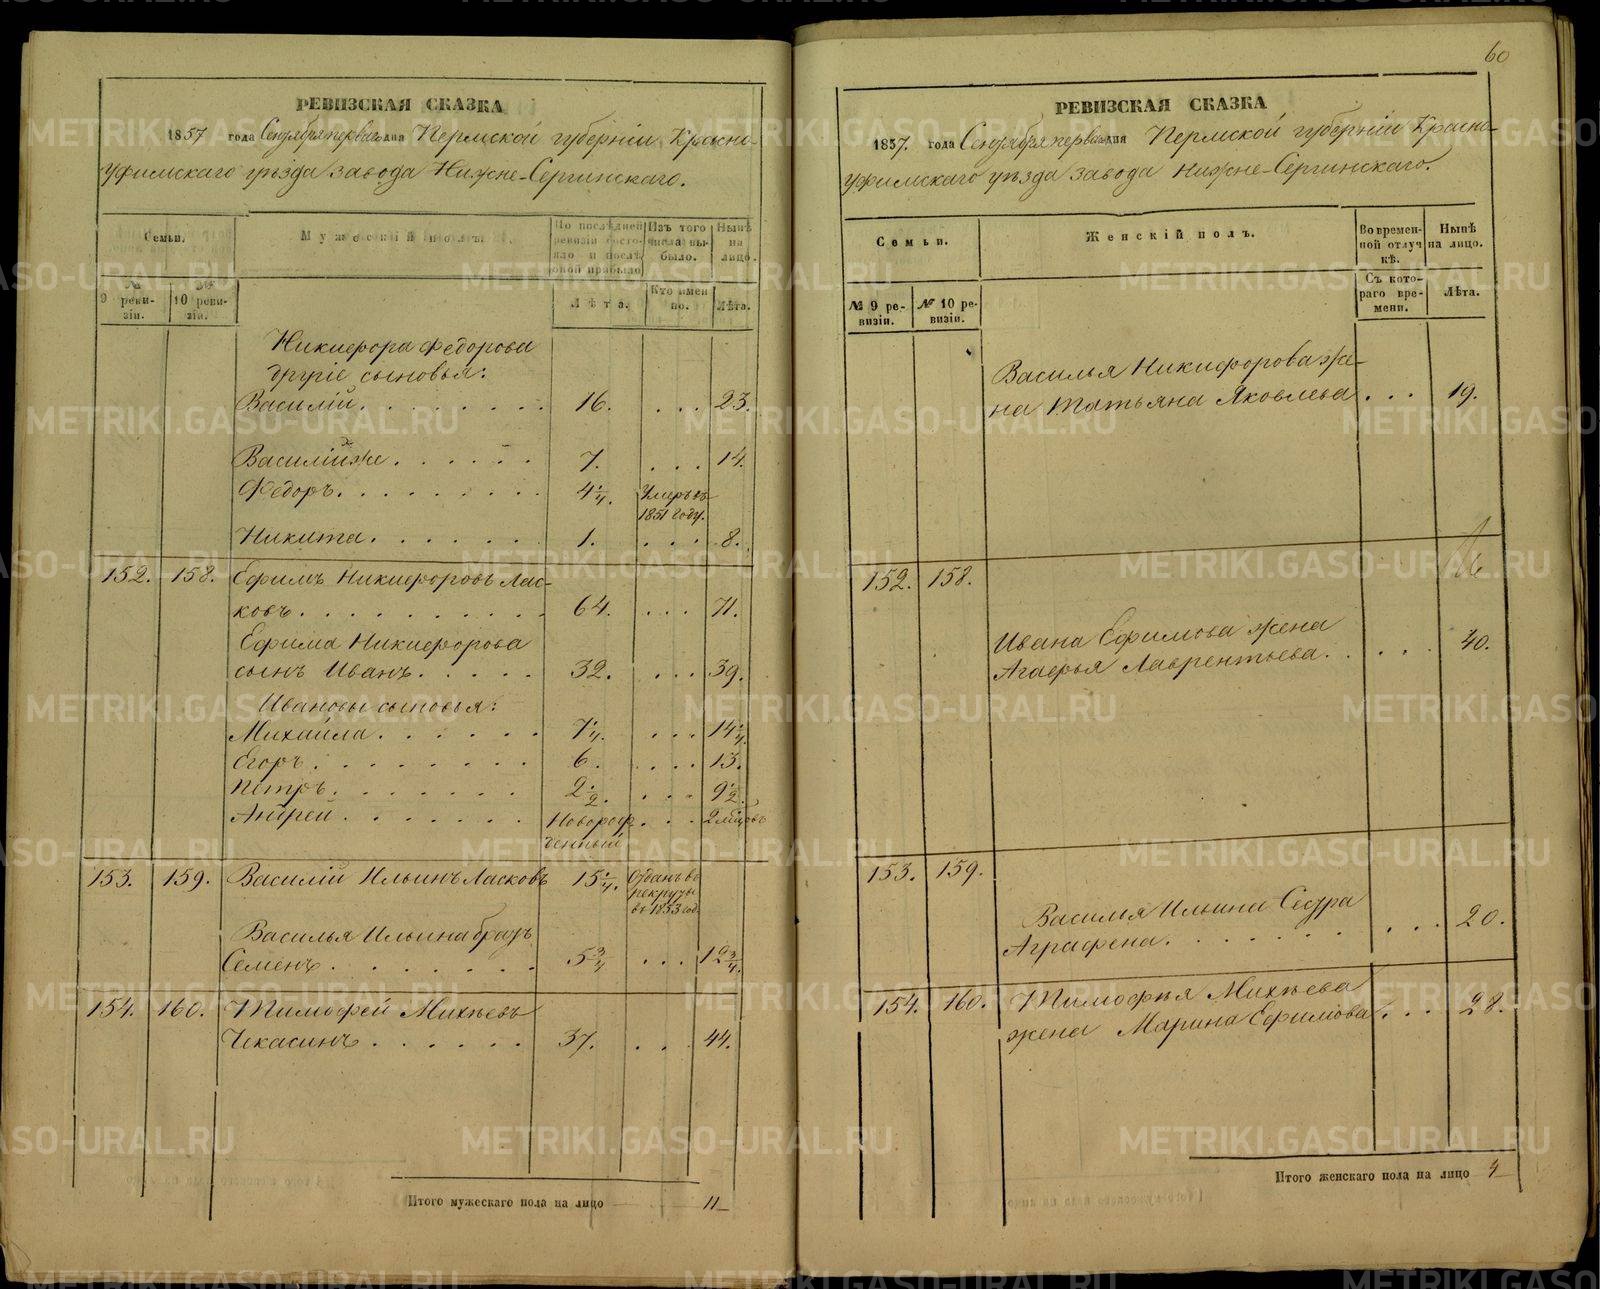 РЕВИЗСКАЯ СКАЗКА
1857 года Сентября перваго дня Пермской губерніи Красно-
уфимскаго уѣзда завода Нижне-Сергинскаго.
Семьи.
Мужескій полъ.
По послѣдней ревизіи состояло и послѣ оной прибыло
Изъ того числа выбыло.
Нынѣ на лицо.
№ 9 ревизіи.
№ 10 ревизіи.
Лѣта.
Кто именно.
Лѣта.
Никифора Федорова
другіе сыновья:
Василій . . . 16. . . . 23.
Василій же . . . 7. . . . 14.
Федоръ . . . 4 1/4. Умеръ въ
1851 году.
Никита . . . 1. . . . 8.
152. 158. Ефимъ Никифоровъ Лас-
ковъ . . . 64. . . . 71.
Ефима Никифорова
сынъ Иванъ . . . 32. . . . 39.
Ивановы сыновья:
Михаила . . . 7 1/4. . . . 14 1/4.
Егоръ . . . 6. . . . 13.
Петръ . . . 2 1/2. . . . 9 1/2.
Андрей . . . Новорож-
денный . . . 2 мѣсяцовъ
153. 159. Василій Ильинъ Ласковъ 15 1/4. Отданъ въ
рекруты
въ 1853 год.
Василья Ильина братъ
Семенъ . . . 5 3/4 . . . 12 3/4.
154. 160. Тимофей Михѣевъ
Чекасинъ . . . 37. . . . 44.
Итого мужескаго пола на лицо 11
60
РЕВИЗСКАЯ СКАЗКА
1857. года Сентября перваго дня Пермской губерніи Красно-
уфимскаго уѣзда завода Нижне-Сергинскаго.
Семьи.
Женскій полъ.
Во временной отлучкѣ.
Нынѣ на лицо.
№ 9 ревизіи.
№ 10 ревизіи.
Съ котораго времени.
Лѣта.
Василья Никифорова же-
на Татьяна Яковлева . . . 19.
152. 158.
Ивана Ефимова жена
Агафья Лаврентьева . . . 40.
153. 159.
Василья Ильина Сестра
Аграфена . . . 20.
154. 160. Тимофѣя Михѣева
жена Марина Ефимова . . . 28.
Итого женскаго пола на лицо 4
METRIKI.GASO-URAL.RU